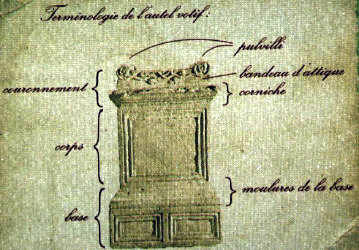 Terminologie de l'autel votif:
pulvilli
bandeau d'attique
couronnement
corniche
corps
moulures de la base
base